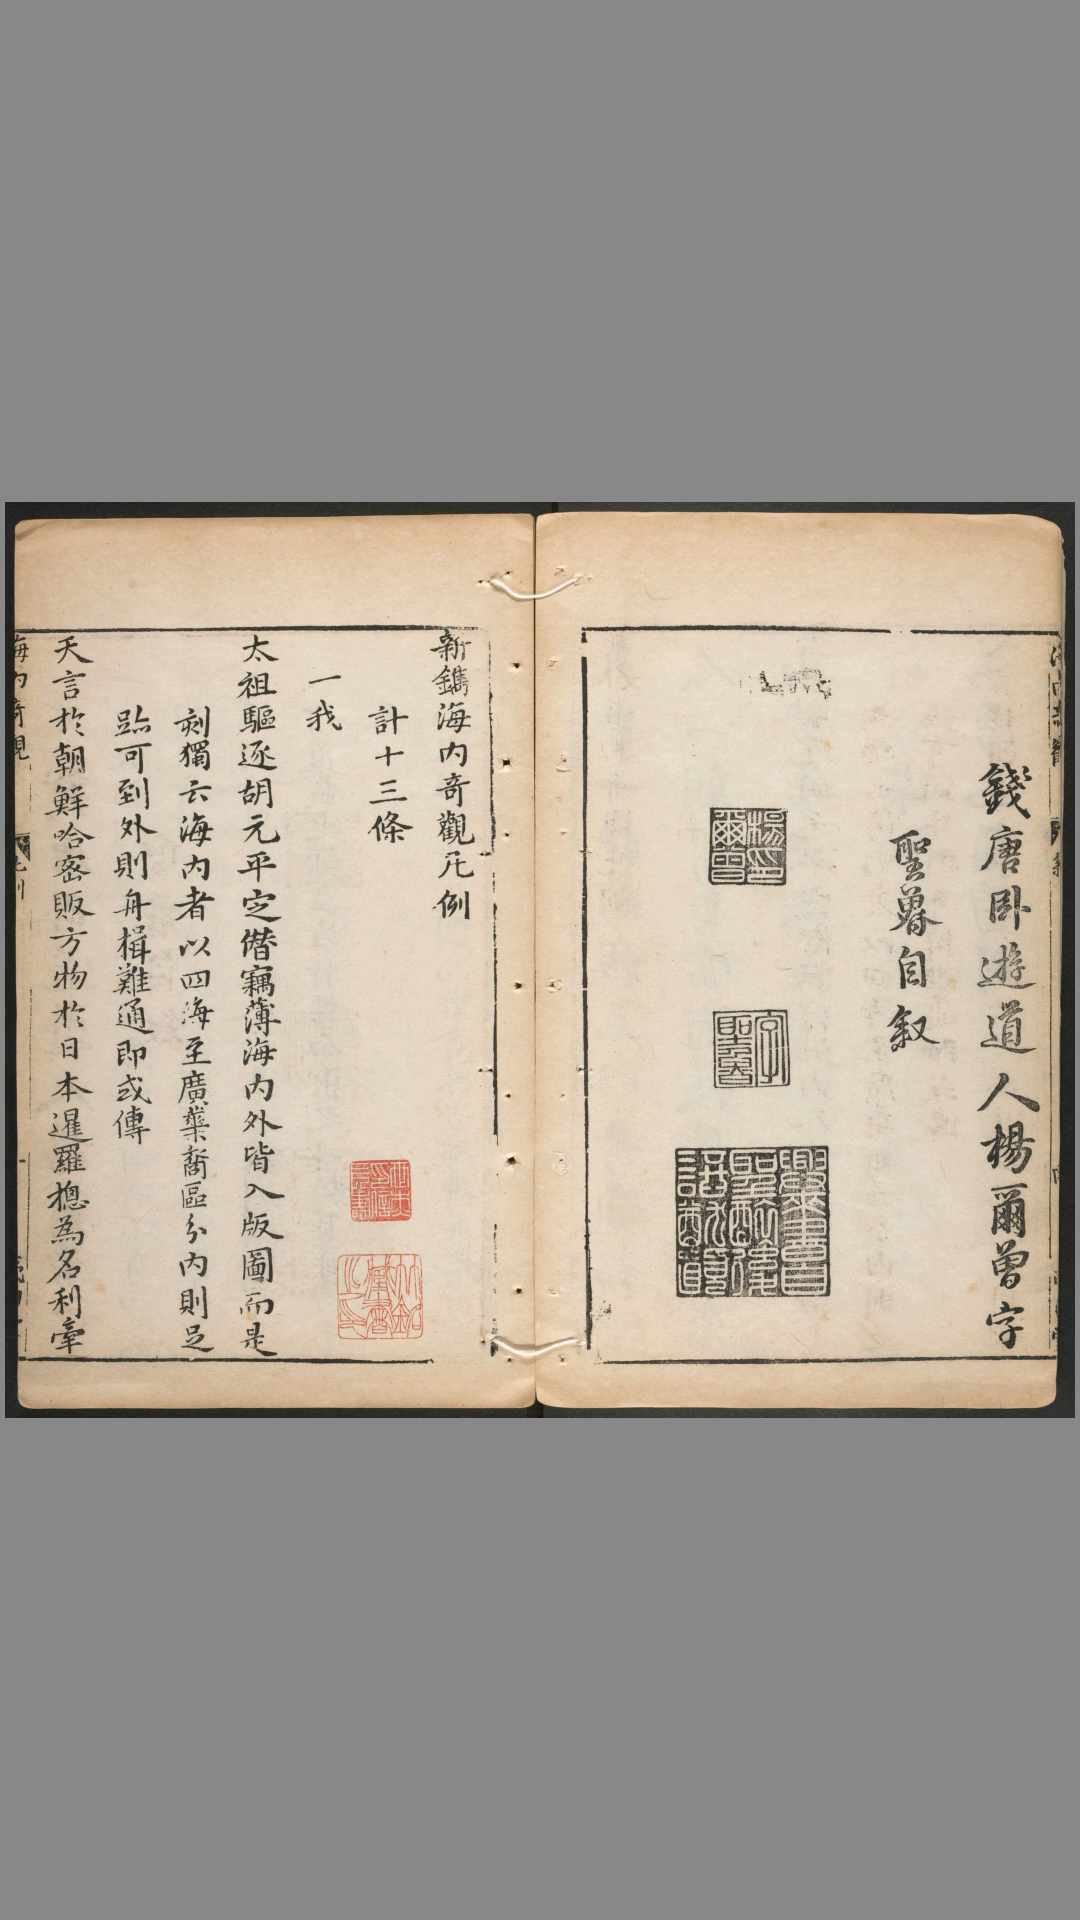 錢唐卧遊道人楊爾曾字
聖魯自叙
楊印爾曾
字聖魯
新鐫海内奇觀凡例
計十三條
一我
太祖驅逐胡元平定僣竊薄海内外皆入版圖而是
刻獨云海内者以四海至廣藥裔區分内則足
跡可到外則舟楫難通即或傳
天言於朝鮮哈密販方物於日本暹羅摠為名利牽
海内奇觀
凡例